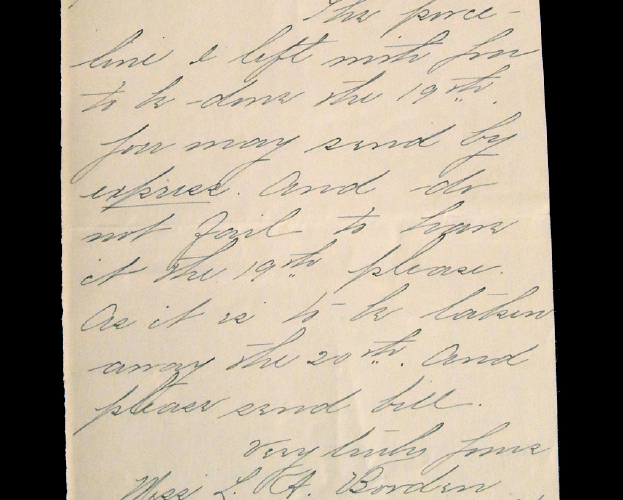 The porce-
line I left with you
to be done the 19th.
You may send by
express. And do
not fail to have
it the 19th please.
As it is to be taken
away the 20th. And
please send bill.
Very truly yours
Miss L. A. Borden